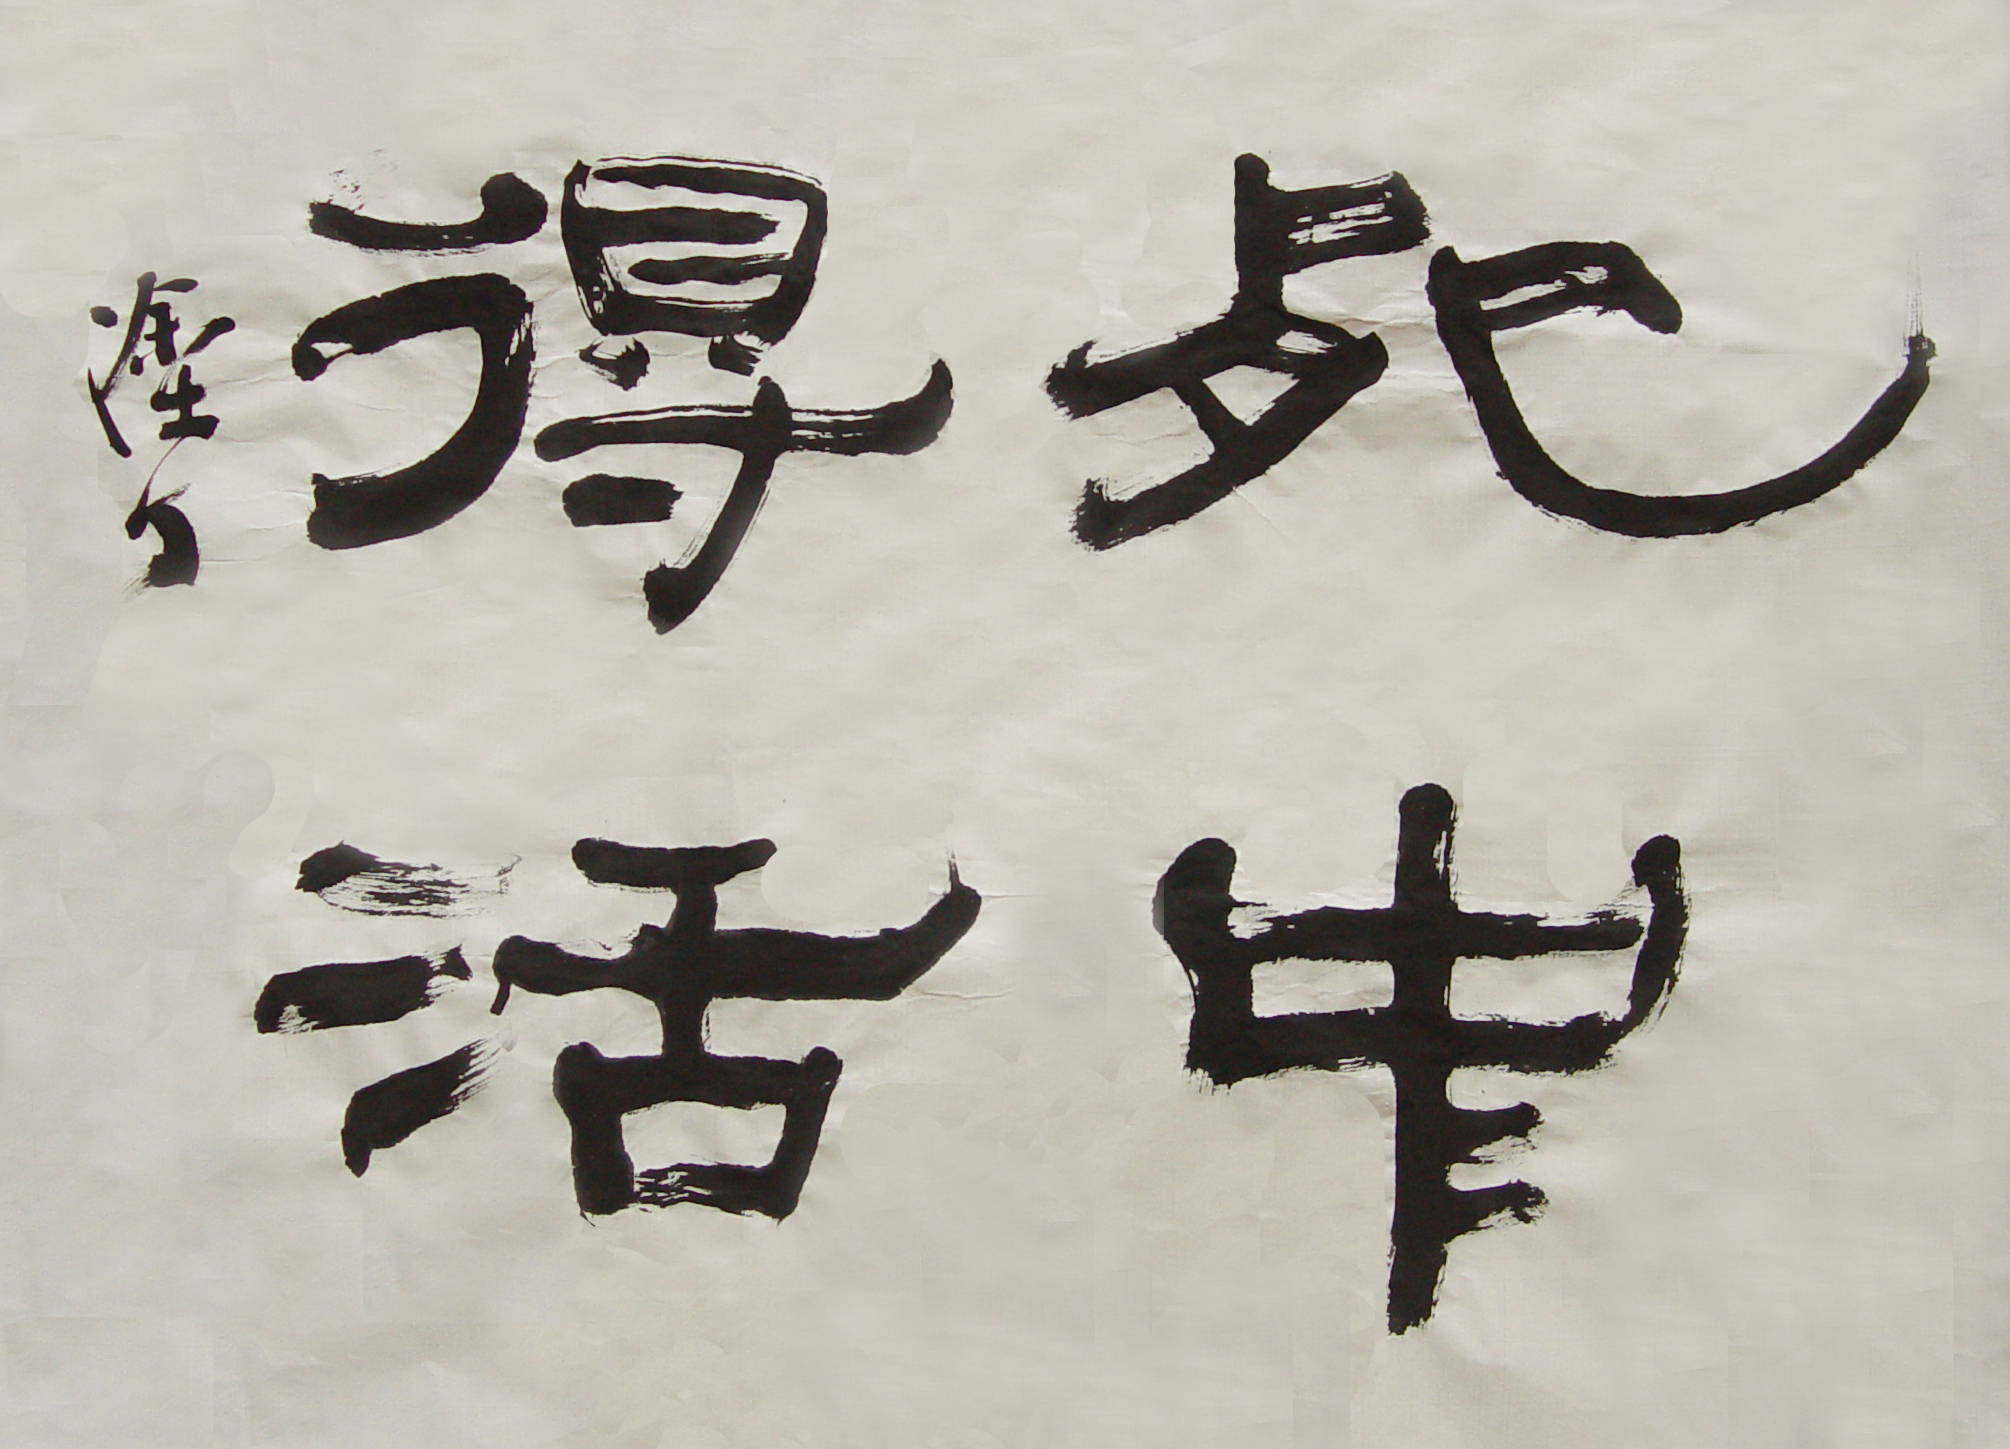 死中
得活